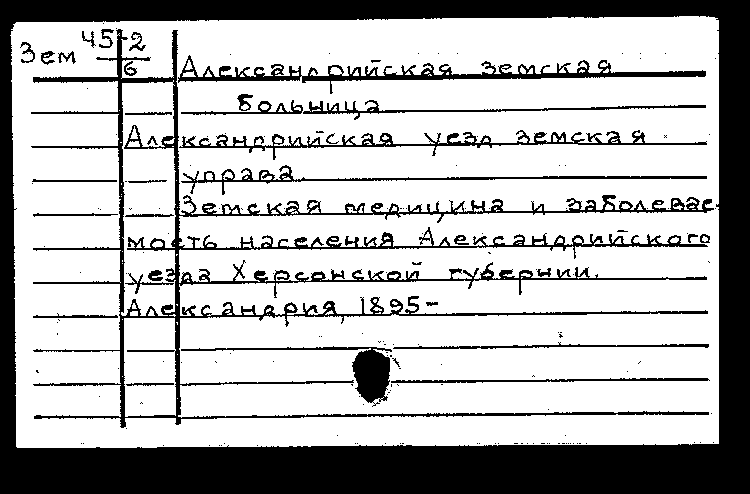 Зем 45-2/6
Александрийская земская
больница
Александрийская уезд земская
управа.
Земская медицина и заболевае-
мость населения Александрийского
уезда Херсонской губернии.
Александрия, 1895-